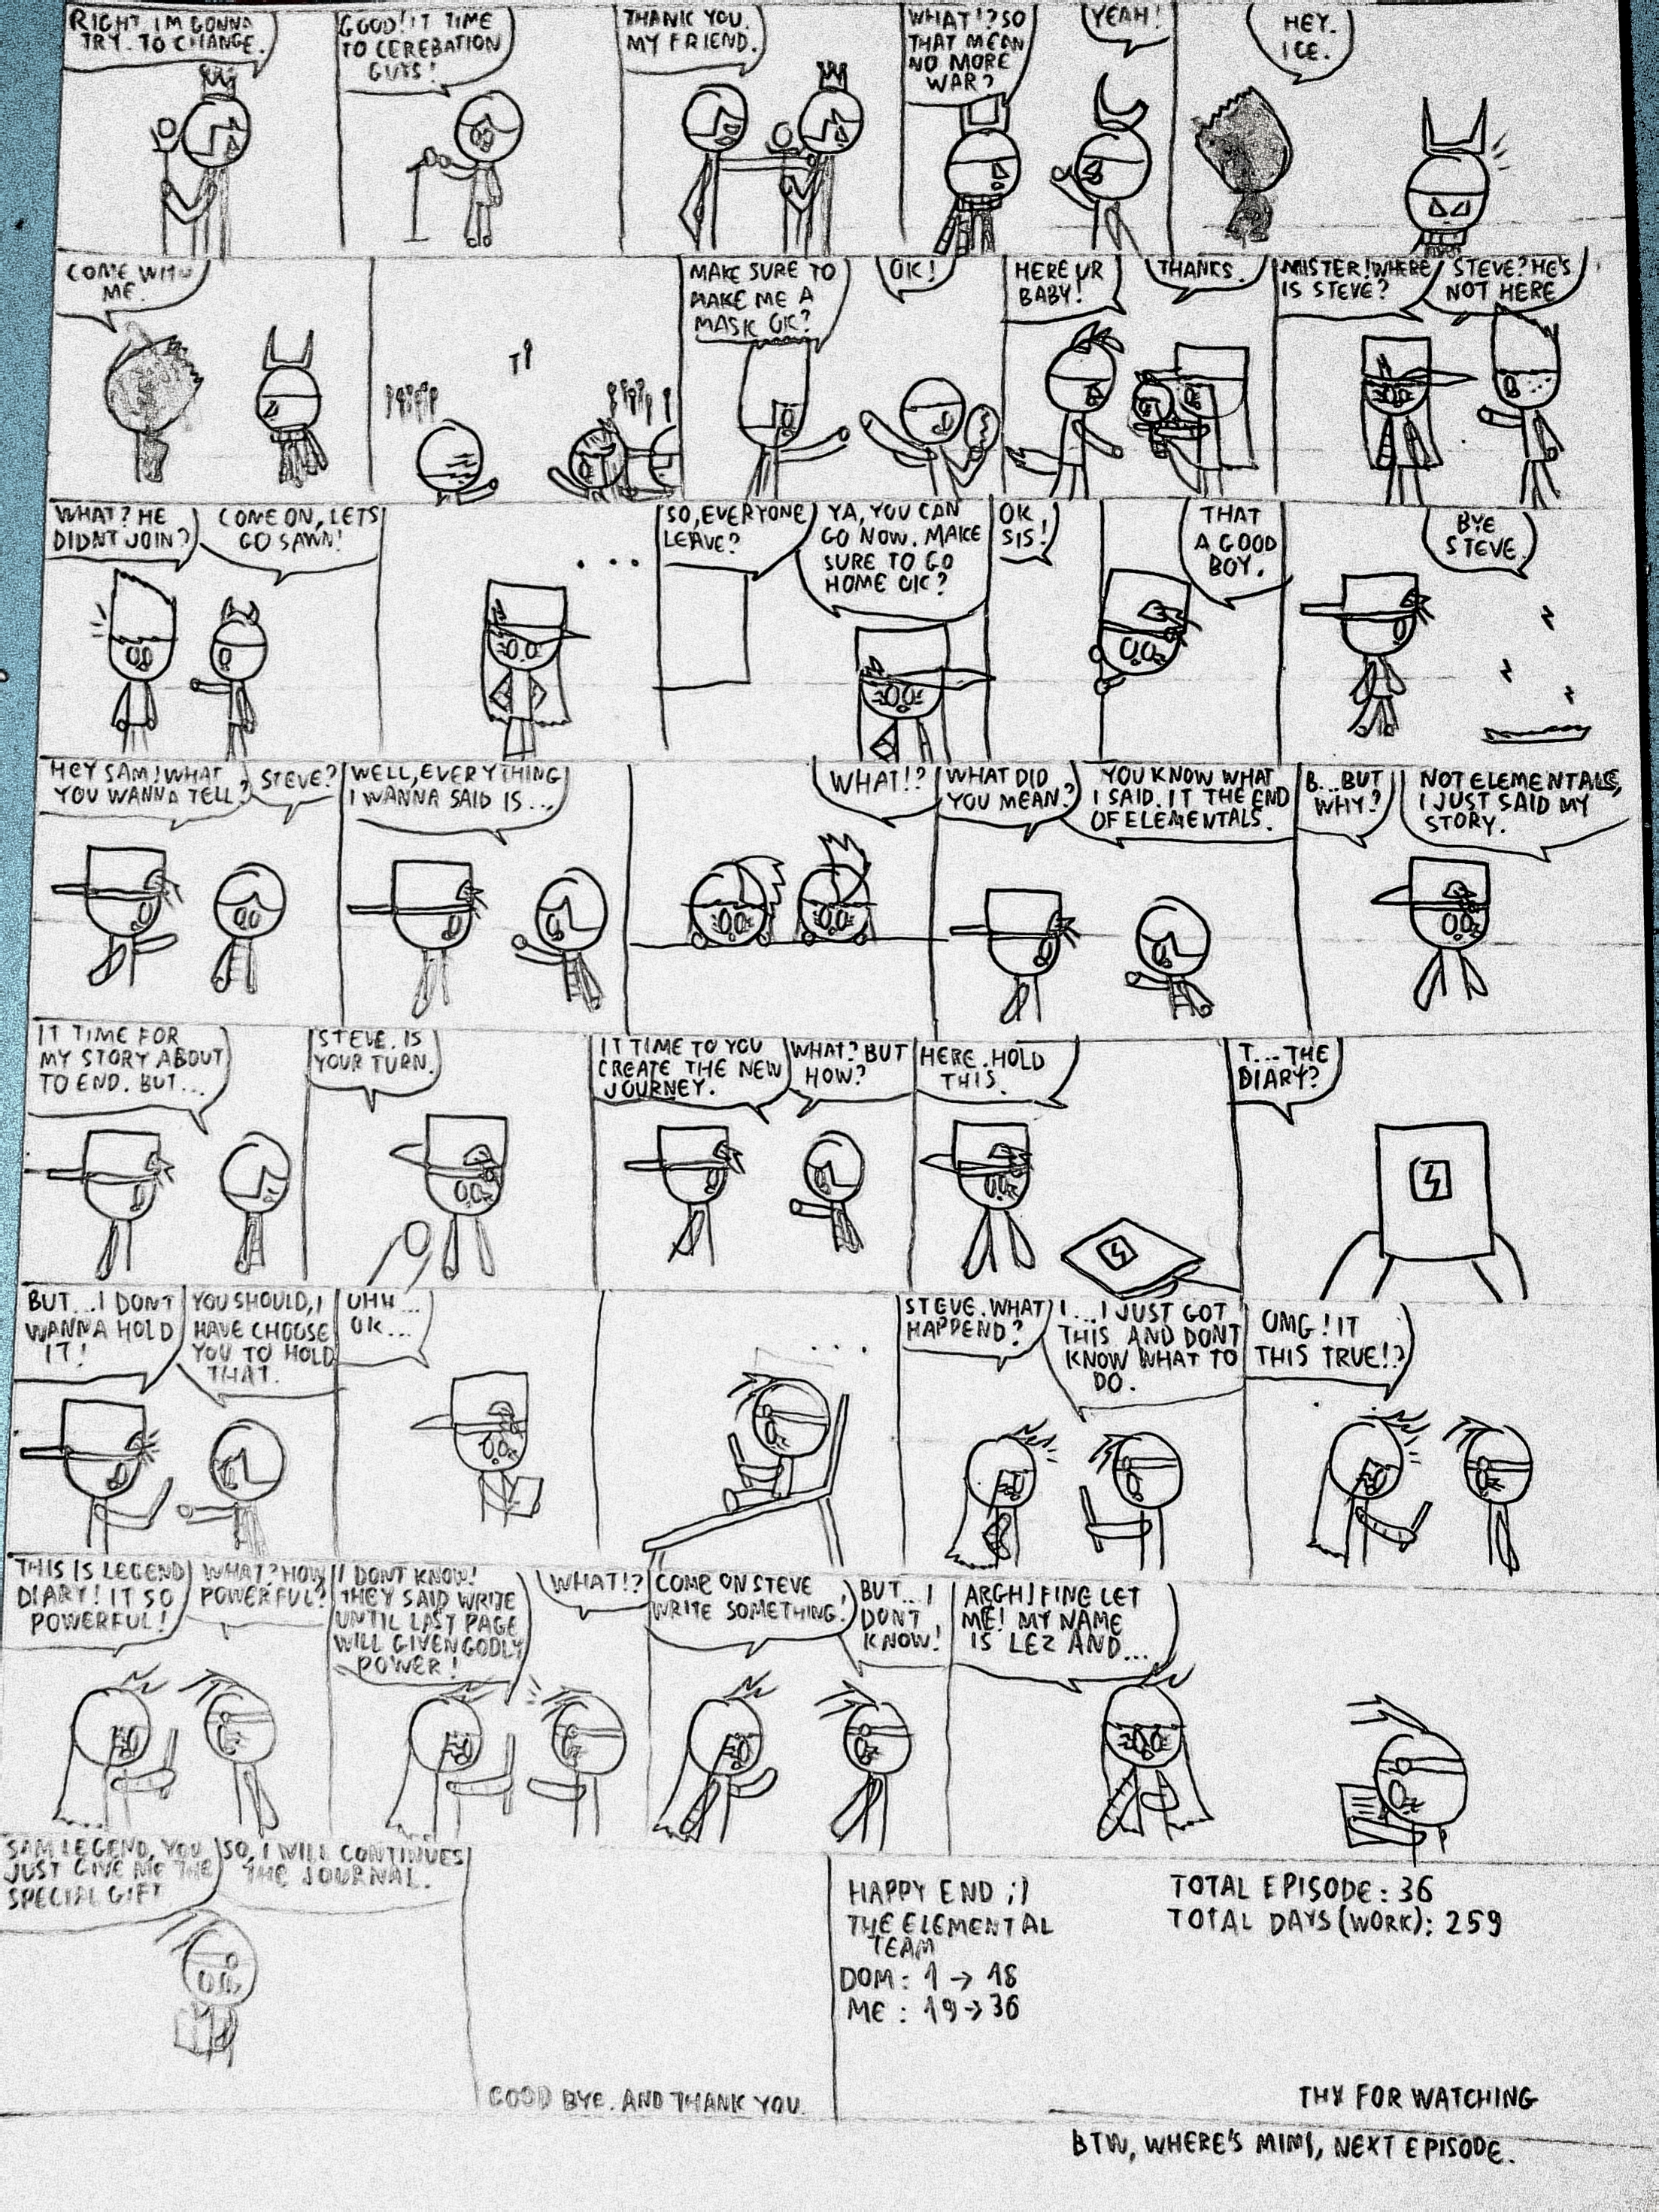 RIGHT IM GONNA
TRY. TO CHANGE.
GOOD! IT TIME
TO CEREBATION
GUYS!
THANK YOU.
MY FRIEND.
WHAT!? SO
THAT MEAN
NO MORE
WAR?
YEAH!
HEY.
ICE.
COME WITH
ME.
MAKE SURE TO
MAKE ME A
MASK OK?
OK!
HERE UR
BABY!
THANKS.
MISTER! WHERE
IS STEVE?
STEVE? HE'S
NOT HERE
WHAT? HE
DIDNT JOIN?
COME ON, LETS
GO SAWN!
...
SO, EVERYONE
LEAVE?
YA, YOU CAN
GO NOW. MAKE
SURE TO GO
HOME OK?
OK
SIS!
THAT
A GOOD
BOY.
BYE
STEVE.
HEY SAM! WHAT
YOU WANNA TELL?
STEVE?
WELL, EVERYTHING
I WANNA SAID IS...
WHAT!?
WHAT DID
YOU MEAN?
YOU KNOW WHAT
I SAID. IT THE END
OF ELEMENTALS.
B...BUT
WHY?
NOT ELEMENTALS,
I JUST SAID MY
STORY.
IT TIME FOR
MY STORY ABOUT
TO END. BUT...
STEVE. IS
YOUR TURN.
IT TIME TO YOU
CREATE THE NEW
JOURNEY.
WHAT? BUT
HOW?
HERE. HOLD
THIS.
T...THE
DIARY?
BUT...I DONT
WANNA HOLD
IT!
YOU SHOULD, I
HAVE CHOOSE
YOU TO HOLD
THAT.
UHH...
OK...
...
STEVE. WHAT
HAPPEND?
I...I JUST GOT
THIS AND DONT
KNOW WHAT TO
DO.
OMG! IT
THIS TRUE!?
THIS IS LEGEND
DIARY! IT SO
POWERFUL!
WHAT? HOW
POWERFUL?
I DONT KNOW!
THEY SAID WRITE
UNTIL LAST PAGE
WILL GIVEN GODLY
POWER!
WHAT!?
COME ON STEVE
WRITE SOMETHING!
BUT...I
DONT
KNOW!
ARGH! FINE LET
ME! MY NAME
IS LEZ AND...
SAM LEGEND, YOU
JUST GIVE ME THE
SPECIAL GIFT
SO, I WILL CONTINUES
THE JOURNAL.
GOOD BYE. AND THANK YOU.
HAPPY END ;)
THE ELEMENTAL
TEAM
DOM: 1 → 18
ME : 19 → 36
TOTAL EPISODE: 36
TOTAL DAYS (WORK): 259
THX FOR WATCHING
BTW, WHERE'S MIMI, NEXT EPISODE.